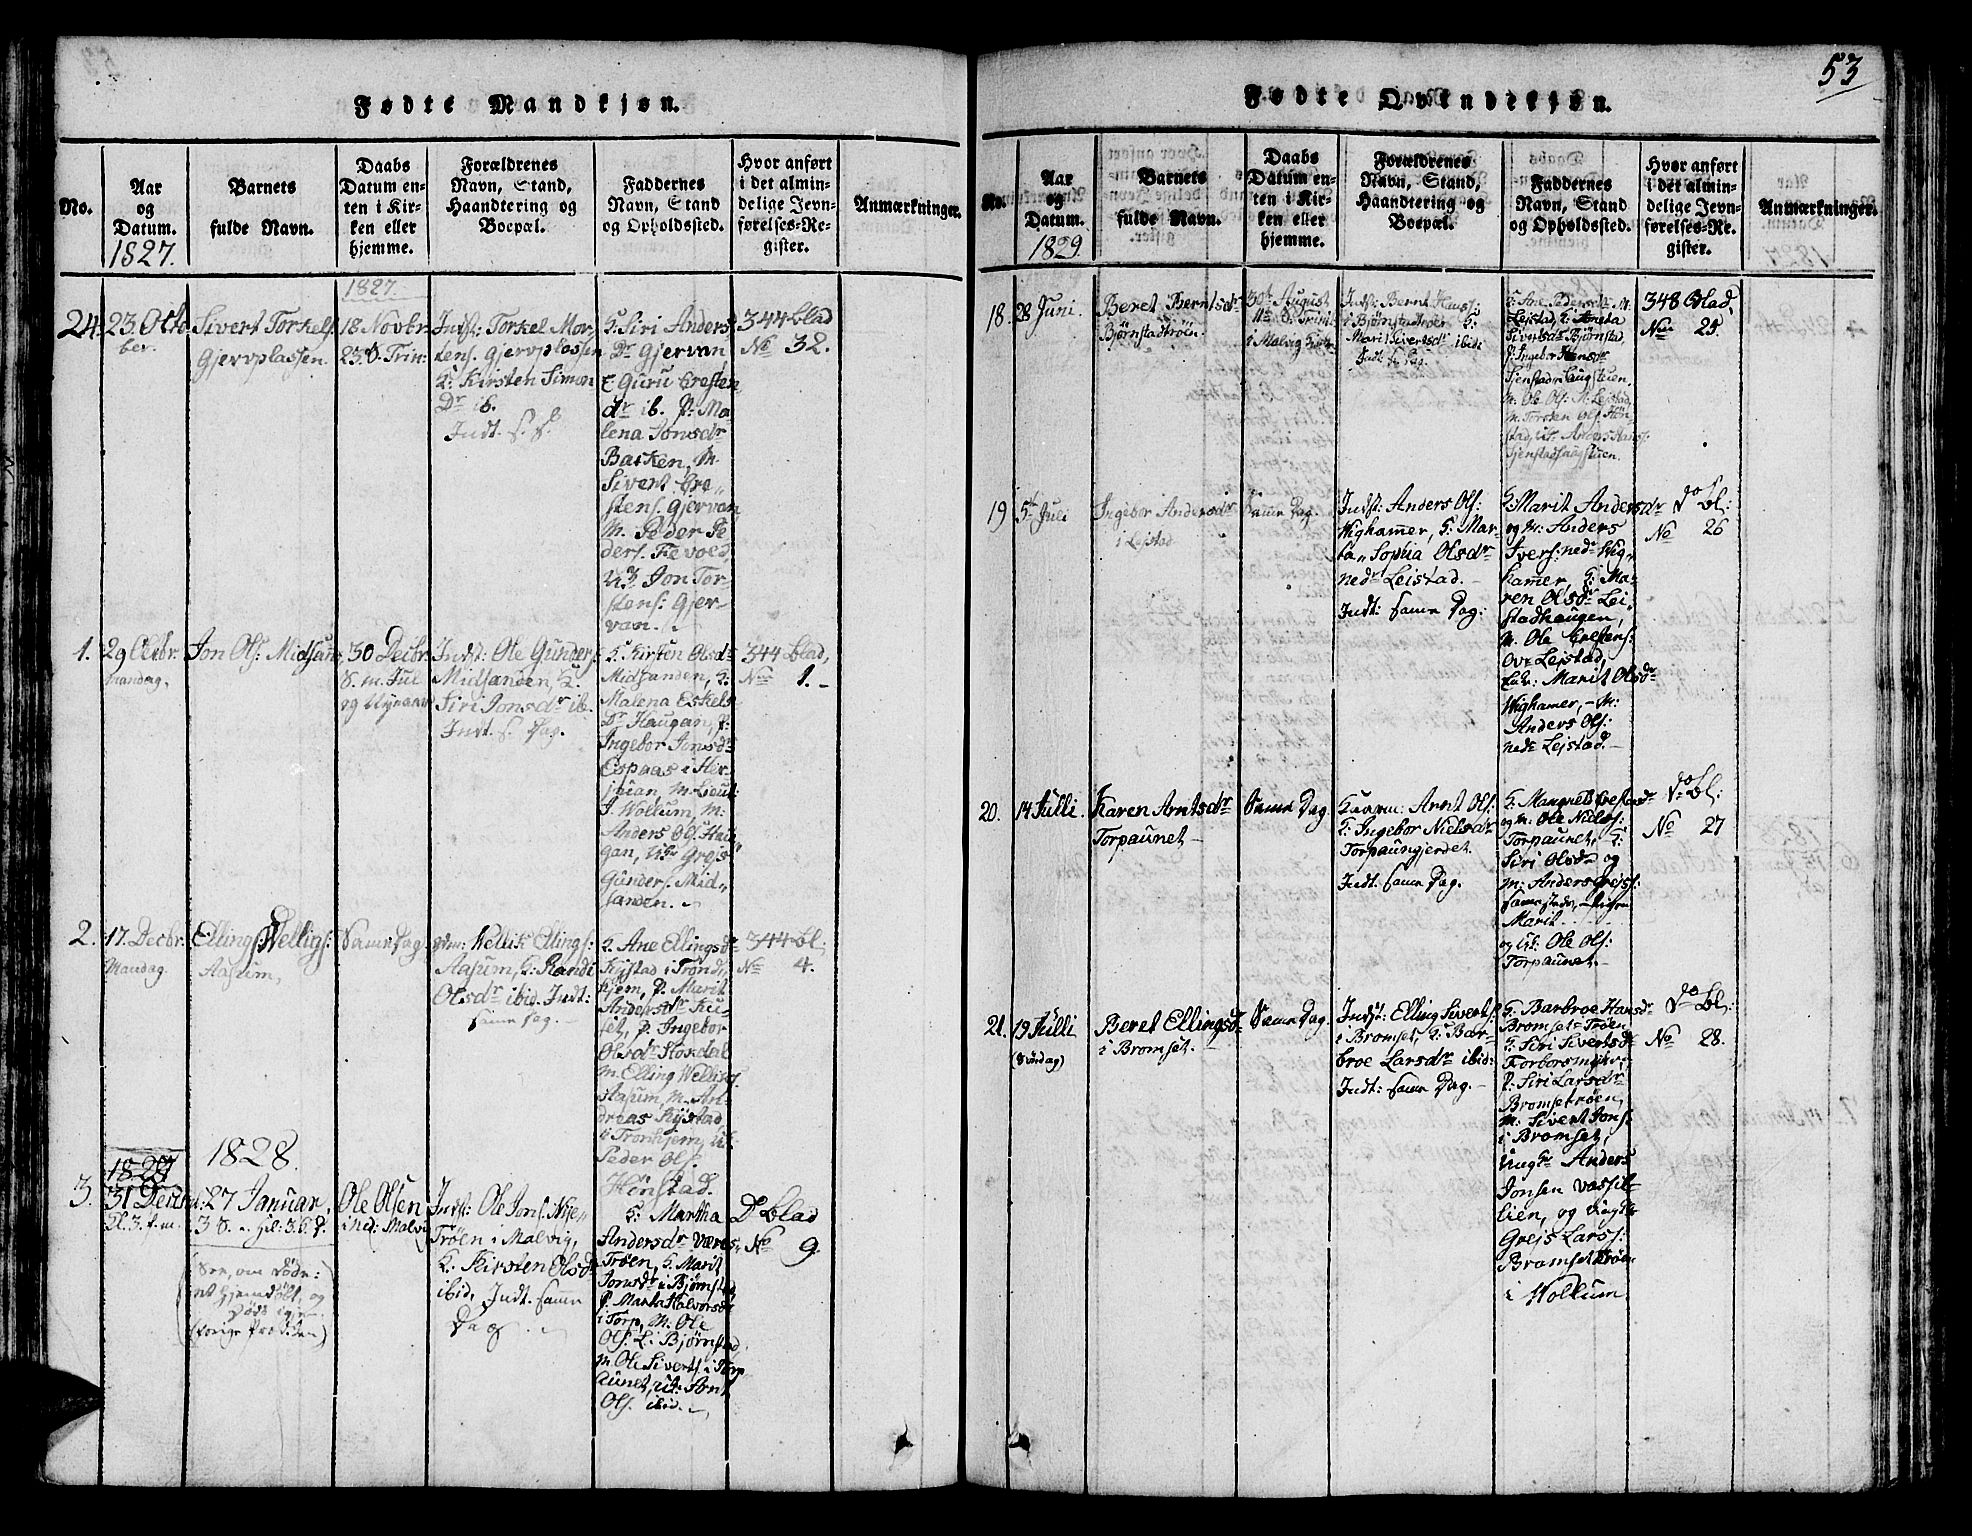 53
Fødte Mandkjøn.
No.
Aar
og
Datum.
1827.
Barnets
fulde Navn.
Daabs
Datum en-
ten i Kir-
ken eller
hjemme.
Forældrenes
Navn, Stand,
Haandtering og
Boepæl.
Faddernes
Navn, Stand
og Opholdssted.
Hvor anført
i det almin-
delige Jevn-
førelses-Re-
gister.
Anmærkninger.
1827
24.
23. Octo
ber.
Sivert Torkels.
Gjervplassen.
18 Novbr.
23. S. Trin:
Indst: Torkel Mor
tens. Gjervplassen
K: Kirsten Simon
Dr ib.
Indt. s. D.
K: Siri Anders
Dr Gjervan
K Guru Eresten
dr ib. P. Ma
lena Jonsdr
Batken, M
Sivert Ere„
stens. Gjervan
M. Peder Pe
ders. Fævold,
U: Jon Tor-
stens: Gjer-
van.
344 blad
No 32.
1.
29 Octbr.
Mandag.
Jon Ols: Midsand
30 Decbr
S. m. Jul
og Nyaar
Indst: Ole Gunders
Midsanden, K.
Siri Jonsdr ib.
Indt. s. Dag.
K. Kirsten Olsdr
Midsanden, K.
Malena Eskels
Dr Haugan, P.
Ingebor Jonsdr
Espaas i Her
jeian, M. Lieut:
J. Wollum, M:
Anders Ols. Hau
gan, U: Grejs
Gunders. Mid„
sanden.
344 blad,
No 1.
2.
17. Decbr.
Mandag
Ellings Welligs:
Aasum,
Samme Dag,
Gdm: Wellik Ellings:
Aasum, K: Randi
Olsdr ibid. Indt:
samme Dag.
K. Ane Ellingsdr
Kystad i Trond„
hjem, P. Marit
Andersdr Hu-
set, P. Ingebor
Olsdr Stokdal
M. Elling Welligs.
Aasum, M. An
dreas Kystad
i Tronhjem, U:
Peder Ols.
Hønstad.
344 bl:
No 4.
1828.
1827
3.
31 Decbr.
Kl. 3. f. m.
27 Januar,
3 S. e. Hel: 3 K. D.
(Søn, om Døde:
nt Hjemdøbt, og
Døde igjen
(forige Prot:)
Ole Olsen
ined: Malvig
Indst: Ole Jons. Nye„
Trøen i Malvig,
K. Kirsten Olsdr
ibid, Indt. samme
Dag.
K: Martha
Andersdr Væres
Trøen, K. Marit
Jonsdr i Bjørnstad
P. Marta Halvorsdr
i Torp, M. Ole
Ols. L. Bjørnstad,
M. Ole Siverts i Torp
aunet, U: Arnt
Ols. ibid.
Do blad
No 9.
Fødte Qvindekjøn.
No.
Aar
og
Datum.
1829.
Barnets
fulde Navn.
Daabs
Datum en-
ten i Kir-
ken eller
hjemme.
Forældrenes
Navn, Stand,
Haandtering og
Boepæl.
Faddernes
Navn, Stand
og Opholdssted.
Hvor anført
i det almin-
delige Jevn-
førelses-Re-
gister.
Anmærkninger.
18.
28 Juni
Beret Berntsdr
Bjørnstadtrøen.
30t August
11te S. Trin:
i Malvig Kirke
Indst: Bernt Hans:
i Bjørnstadtrøen K:
Marit Sivertsdr ibid
Indt: s. Dag.
K: Ane Pedersdr N.
Leistad, K: Aneta
Sivertsdr Bjørnstad,
P. Ingebor Hansdr
Sjenstadhaugstuen,
M. Ole Ols: N. Leistad,
M. Torsten Ols. Høn
stad, U: Anders Hans:
Sjenstadhaugstuen.
348 blad,
No 25.
19
5t Juli
Ingebor Andersdr
i Leistad
Samme Dag.
Indst: Anders Ols:
Wighamer, K: Mar
ta„ Sophia Olsdr
nedr Leistad.
Indt: samme Dag:
K: Marit Andersdr
og M: Anders
Ivers: nedr Wig„
hamer, K: Ma-
ren Olsdr Lei„
stadhaugen,
M. Ole Erestens:
Ovr Lejstad,
Marit Olsdr
Wighamer, – M:
Anders Ols:
nedr Lejstad.
Do bl:
No 26
20.
14 Julli.
Karen Arntsdr
Torpaunet
Samme Dag
Arnt Ols:
K: Ingebor Nielsdr
Torpaungjerdet.
Indt: samme Dag.
K: Mangnel Erestensdr
og M. Ole Niels:
Torpaunet, K:
Siri Olsdr og
M: Anders Grejs:
sammesteds, – Pigen
Marit
og U: Ole Ols:
Torpaunet.
Do bl:
No 27
21.
19 Julli
(Søndag)
Beret Ellingsdr
i Bromset.
Samme Dag.
Indst: Elling Siverts:
i Bromset, K: Bar-
broe Larsdr ibid:
Indt: samme Dag.
K: Barbroe Hansdr
Bromset-Trøen
K: Siri Sivertsdr
Forborsmyhr,
P: Siri Larsdr
Bromsetrøen,
M: Sivert Jons:
i Bromset,
Ungkr Anders
Jonsen Vassil-
lien, og Ungkr
Grejs Lars:
Bromsettrøen
i Wollum
Do bl:
No 28.